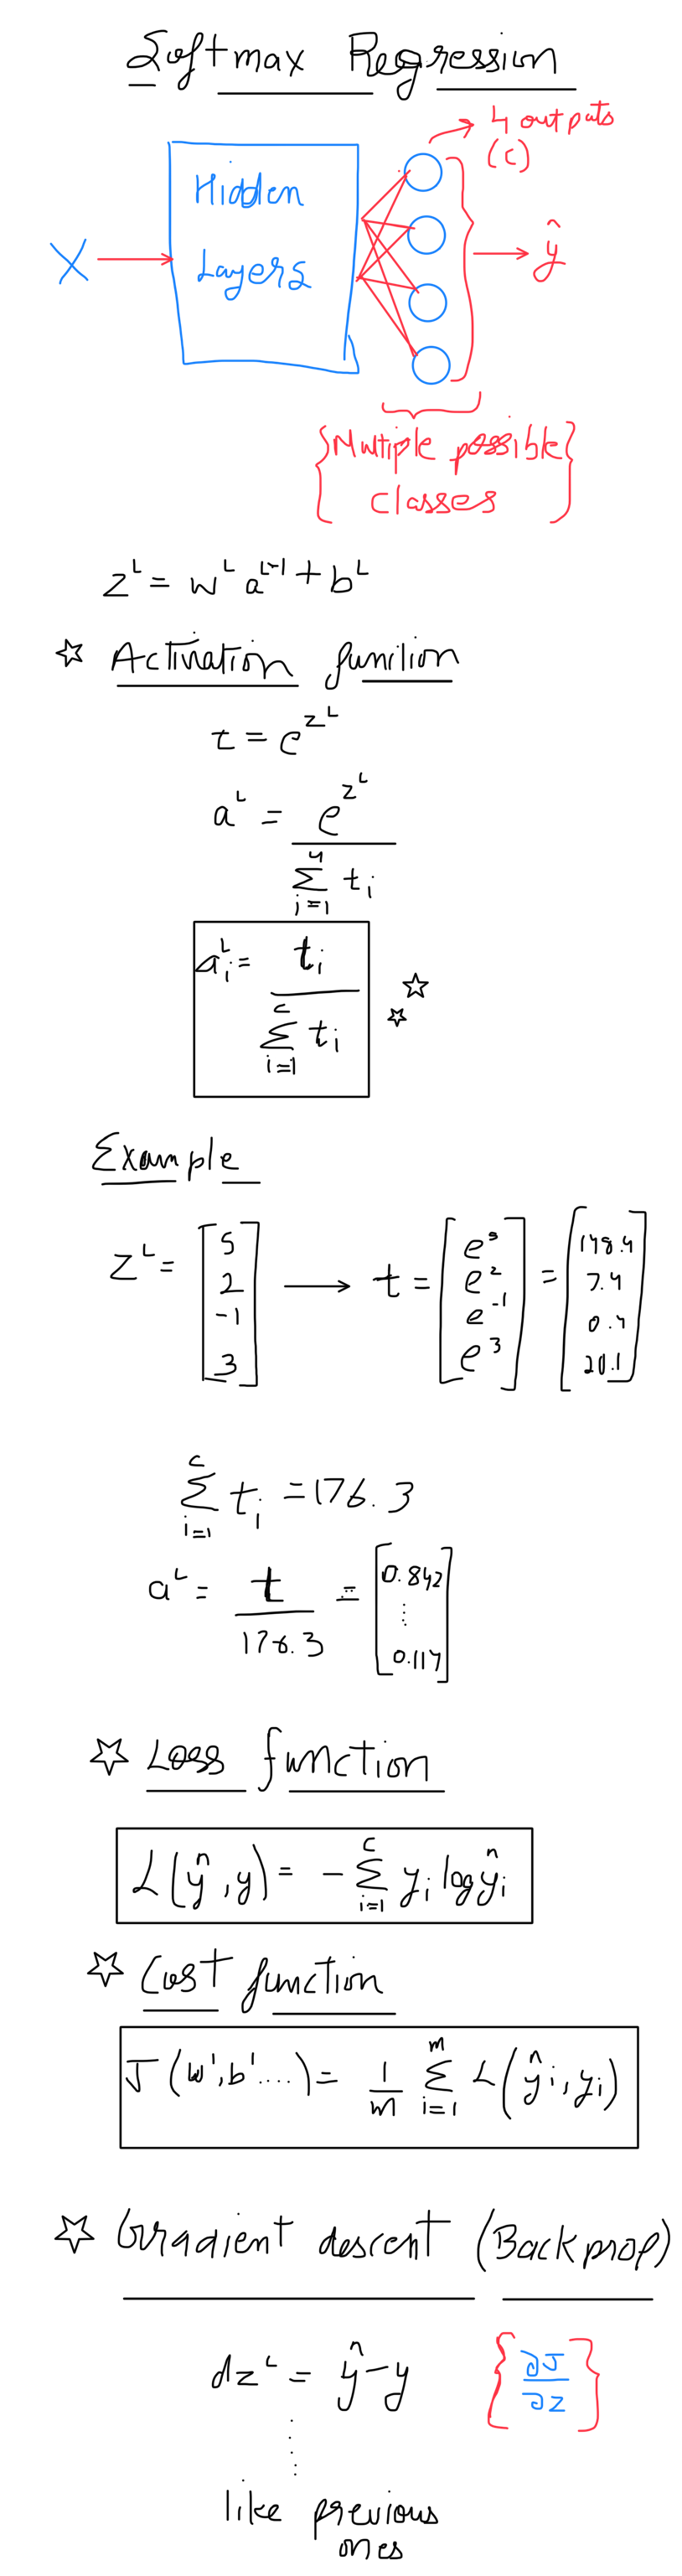 Softmax Regression
4 outputs
(C)
Hidden
Layers
X
ŷ
{Multiple possible
classes}
z^L = w^L a^{L-1} + b^L
☆ Activation function
t = e^{z^L}
a^L = e^{z^L} / Σ_{i=1}^{4} t_i
a_i^L = t_i / Σ_{i=1}^{c} t_i ☆☆
Example
z^L = [5 2 -1 3] → t = [e^5 e^2 e^{-1} e^3] = [148.4 7.4 0.4 20.1]
Σ_{i=1}^{c} t_i = 176.3
a^L = t / 176.3 = [0.842 ⋮ 0.114]
☆ Loss function
L(ŷ, y) = - Σ_{i=1}^{c} y_i log ŷ_i
☆ Cost function
J(w', b' ....) = 1/m Σ_{i=1}^{m} L(ŷ_i, y_i)
☆ Gradient descent (Backprop)
dz^L = ŷ - y {∂J/∂z}
like previous
ones